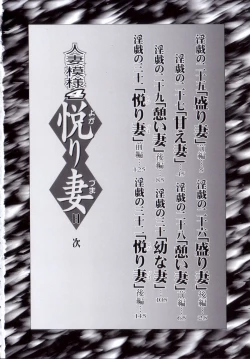 淫戯の二十五「盛り妻」前編
淫戯の二十六「盛り妻」後編
淫戯の二十七「甘え妻」45
淫戯の二十八「憩い妻」前編
淫戯の二十九「憩い妻」後編 85
淫戯の三十「幼な妻」105
淫戯の三十一「悦り妻」前編 125
淫戯の三十二「悦り妻」後編 145
人妻模様4
よが つま
悦り妻
目次